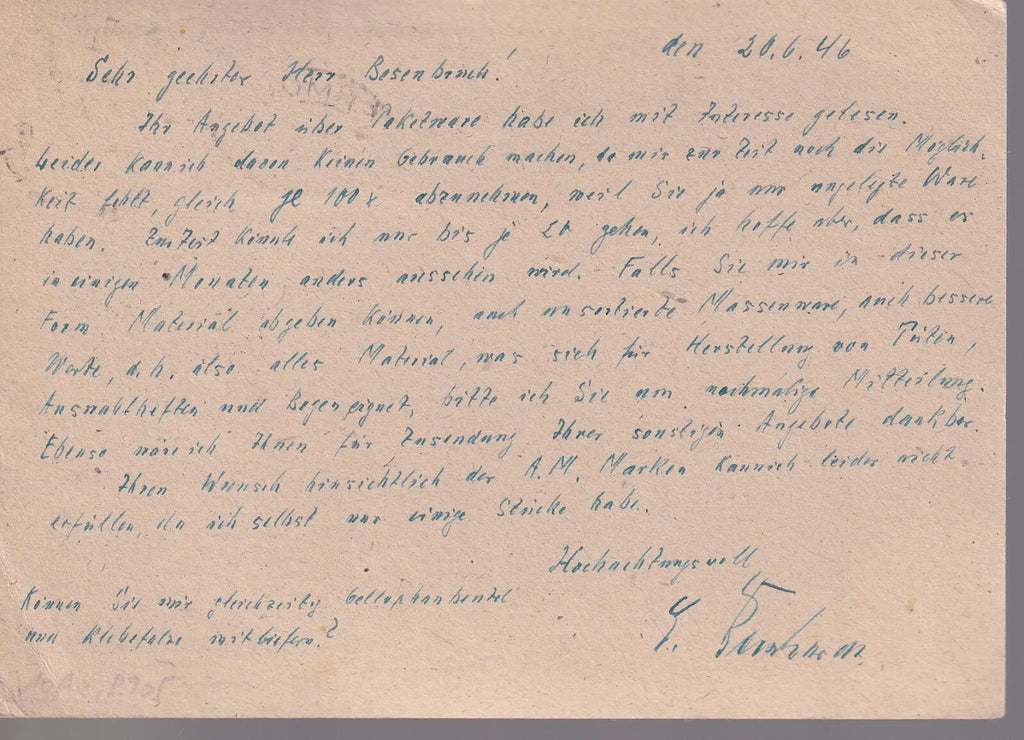 den 20.6.46
Sehr geehrter Herr Besenbruch!
Ihr Angebot über Paketware habe ich mit Interesse gelesen.
Leider kann ich davon keinen Gebrauch machen, da mir zur Zeit noch die Möglich-
keit fehlt, gleich je 100 x abzunehmen, weil Sie ja nur ungelegte Ware
haben. Zur Zeit könnte ich nur bis je 20 gehen, ich hoffe aber, dass es
in einigen Monaten anders aussehen wird. Falls Sie mir in dieser
Form Material abgeben können, auch unsortierte Massenware, auch bessere
Werte, d.h. also alles Material, was sich für Herstellung von Tüten,
Auswahlheften und Bogen eignet, bitte ich Sie um nochmalige Mitteilung.
Ebenso wäre ich Ihnen für Zusendung Ihrer sonstigen Angebote dankbar.
Ihren Wunsch hinsichtlich der A.M. Marken kann ich leider nicht
erfüllen, da ich selbst nur einige Stücke habe.
Hochachtungsvoll
E. Bernhardt
Können Sie mir gleichzeitig Cellophanbeutel
und Klebefalze mitliefern?